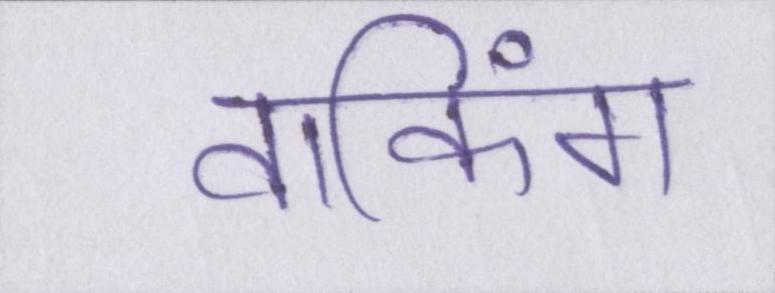 वाकिंग